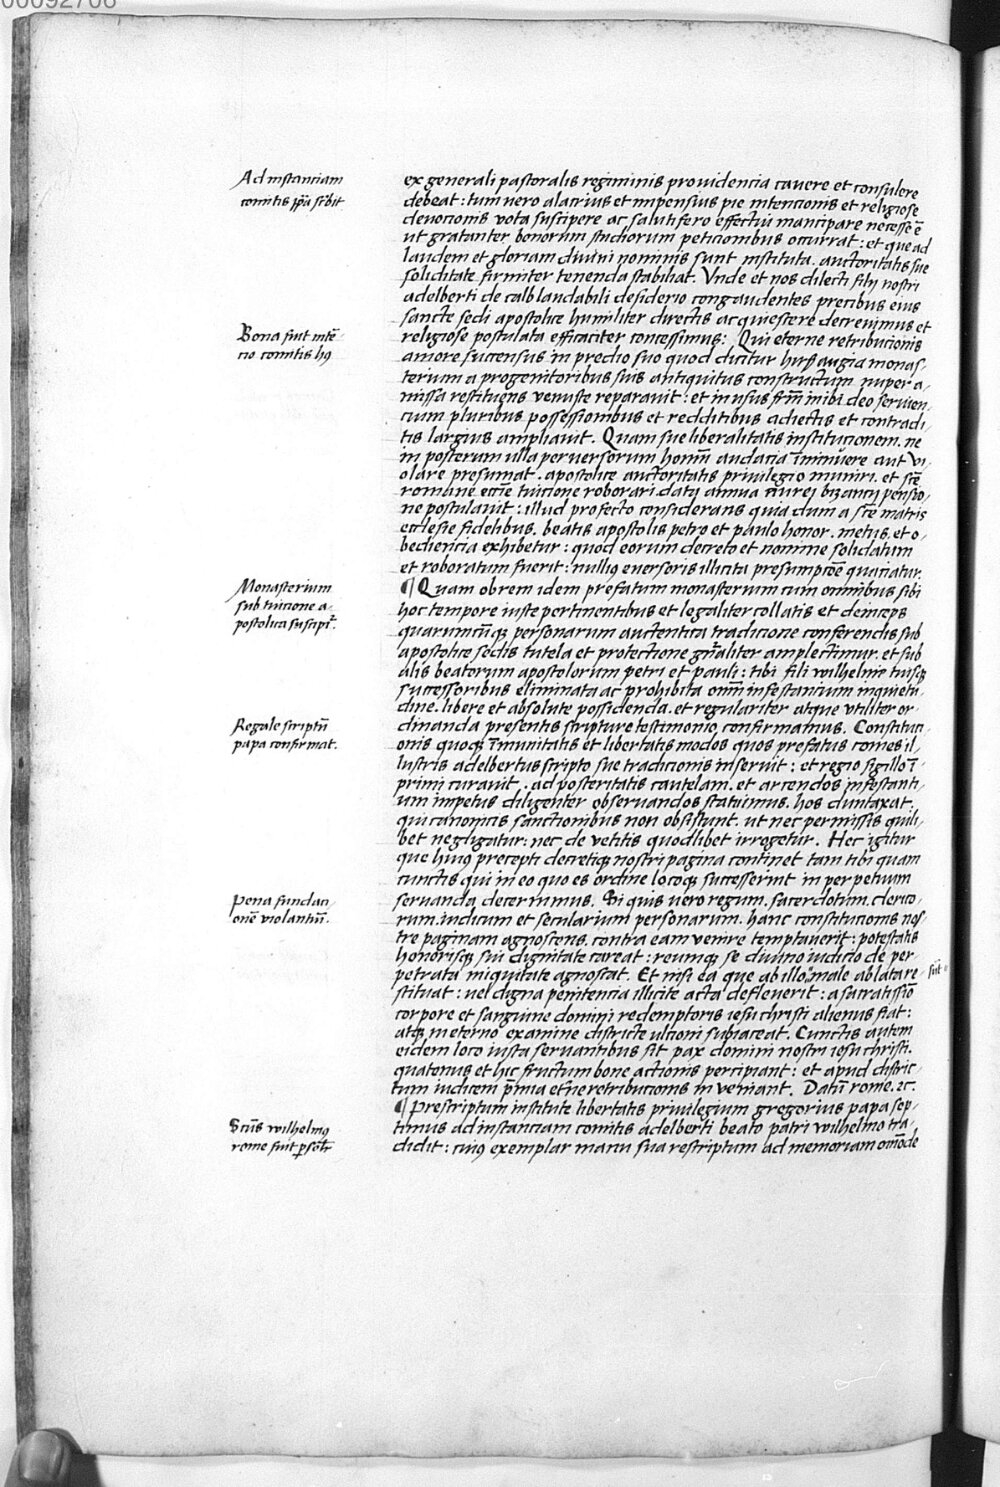 00092706
Ad instanciam
comitis ppa scribit
ex generali pastoralis regiminis providencia cavere et consulere
debeat : tum vero alacrius et impensius pie intencionis et religiose
devocionis vota suscipere ac salutifero effectui mancipare necesse ē
ut gratanter bonorum studiorum peticionibus occurrat : et que ad
laudem et gloriam divini nominis sunt instituta . auctoritatis sue
soliditate firmiter tenenda stabiliat . Unde et nos dilecti filii nostri
adelberti de calb laudabili desiderio congaudentes precibus eius
sancte sedi apostolice humiliter directis acquiescere decrevimus et
Bona fuit intē-
cio comitis hꝰ
religiose postulata efficaciter concessimus : Qui eterne retribucionis
amore succensus in predio suo quod dicitur hirsaugia monas-
terium a progenitoribus suis antiquitus constructum nuper a-
missa restituens venuste reparavit : et in usus frm̄ inibi deo servien-
cium pluribus possessionibus et redditibus adiectis et contradi-
tis largius ampliavit . Quam sue liberalitatis institucionem ne
in posterum ulla perversorum hominū audacia īminuere aut vi-
olare presumat . apostolice auctoritatis privilegio muniri . et scē
romane ecctīe tuicione roborari . dati annua aurei bizantij pensio-
ne postulavit : illud profecto considerans quia dum a scē matris
ecclesie fidelibus . beatis apostolis petro et paulo honor . metus . et o-
bediencia exhibetur : quod eorum decreto et nomine solidatum
et roboratum fuerit : nullꝰ eversoris illicita presumpcōe quaciatur .
Monasterium
sub tuicione a-
postolica suscipit̄ .
¶ Quam obrem idem prefatum monasterium cum omnibus sibi
hoc tempore iuste pertinentibus et legaliter collatis et deinceps
quarumcūqꝫ personarum auctentica tradicione conferendis sub
apostolice sedis tutela et protectione gn̄aliter amplectimur . et sub
alis beatorum apostolorum petri et pauli : tibi fili wilhelme tuisqꝫ
successoribus eliminata ac prohibita om̄i infestancium inquietu-
dine . libere et absolute possidenda . et regulariter atque utiliter or-
Regale scriptū
papa confirmat .
dinanda presentis scripture testimonio confirmamus . Constituci-
onis quoqꝫ īmunitatis et libertatis modos quos prefatus comes il-
lustris adelbertus scripto sue tradicionis inseruit : et regio sigillo ī-
primi curavit . ad posteritatis cautelam . et arcendos infestanti-
um impetus diligenter observandos statuimus . hos duntaxat .
qui canonicis sanctionibus non obsistunt . ut nec permissis quili-
bet negligatur : nec de vetitis quodlibet irrogetur . Hec igitur
que huiꝰ precepti decretiqꝫ nostri pagina continet tam tibi quam
cunctis qui in eo quo es ordine locoqꝫ successerint in perpetuum
Pena fundaci-
onē violantiū .
servanda decernimus . Si quis vero regum . sacerdotum . clerico-
rum . iudicum et secularium personarum . hanc constitucionis nos-
tre paginam agnoscens . contra eam venire temptaverit : potestatis
honorisqꝫ sui dignitate careat : reumqꝫ se divino iudicio de per-
petrata iniquitate agnoscat . Et nisi ea que ab illo male ablata re- sūt
stituat : vel digna penitencia illicite acta defleverit : a sacratissīo
corpore et sanguine domini redemptoris iesu christi alienus fiat :
atqꝫ in eterno examine districte ultioni subiaceat . Cunctis autem
eidem loco iusta servantibus sit pax domini nostri iesu christi .
quatenus et hic fructum bone actionis percipiant : et apud distric-
tum iudicem p̄mia eterne retribucionis inveniant . Datū rome . ꝛc .
¶ Prescriptum institute libertatis privilegium gregorius papa sep-
Sctūs wilhelmꝰ
rome fuit p̄sōlr
timus ad instanciam comitis adelberti beato patri wilhelmo tra-
didit : cuiꝰ exemplar manu sua rescriptum ad memoriam omōde